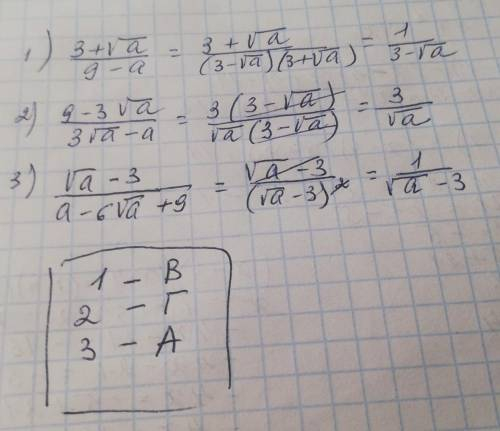 1) (3+√a)/(9-a) = (3+√a)/((3-√a)(3+√a)) = 1/(3-√a)
2) (9-3√a)/(3√a-a) = (3(3-√a))/(√a(3-√a)) = 3/√a
3) (√a-3)/(a-6√a+9) = (√a-3)/(√a-3)² = 1/(√a-3)
1 - В
2 - Г
3 - А